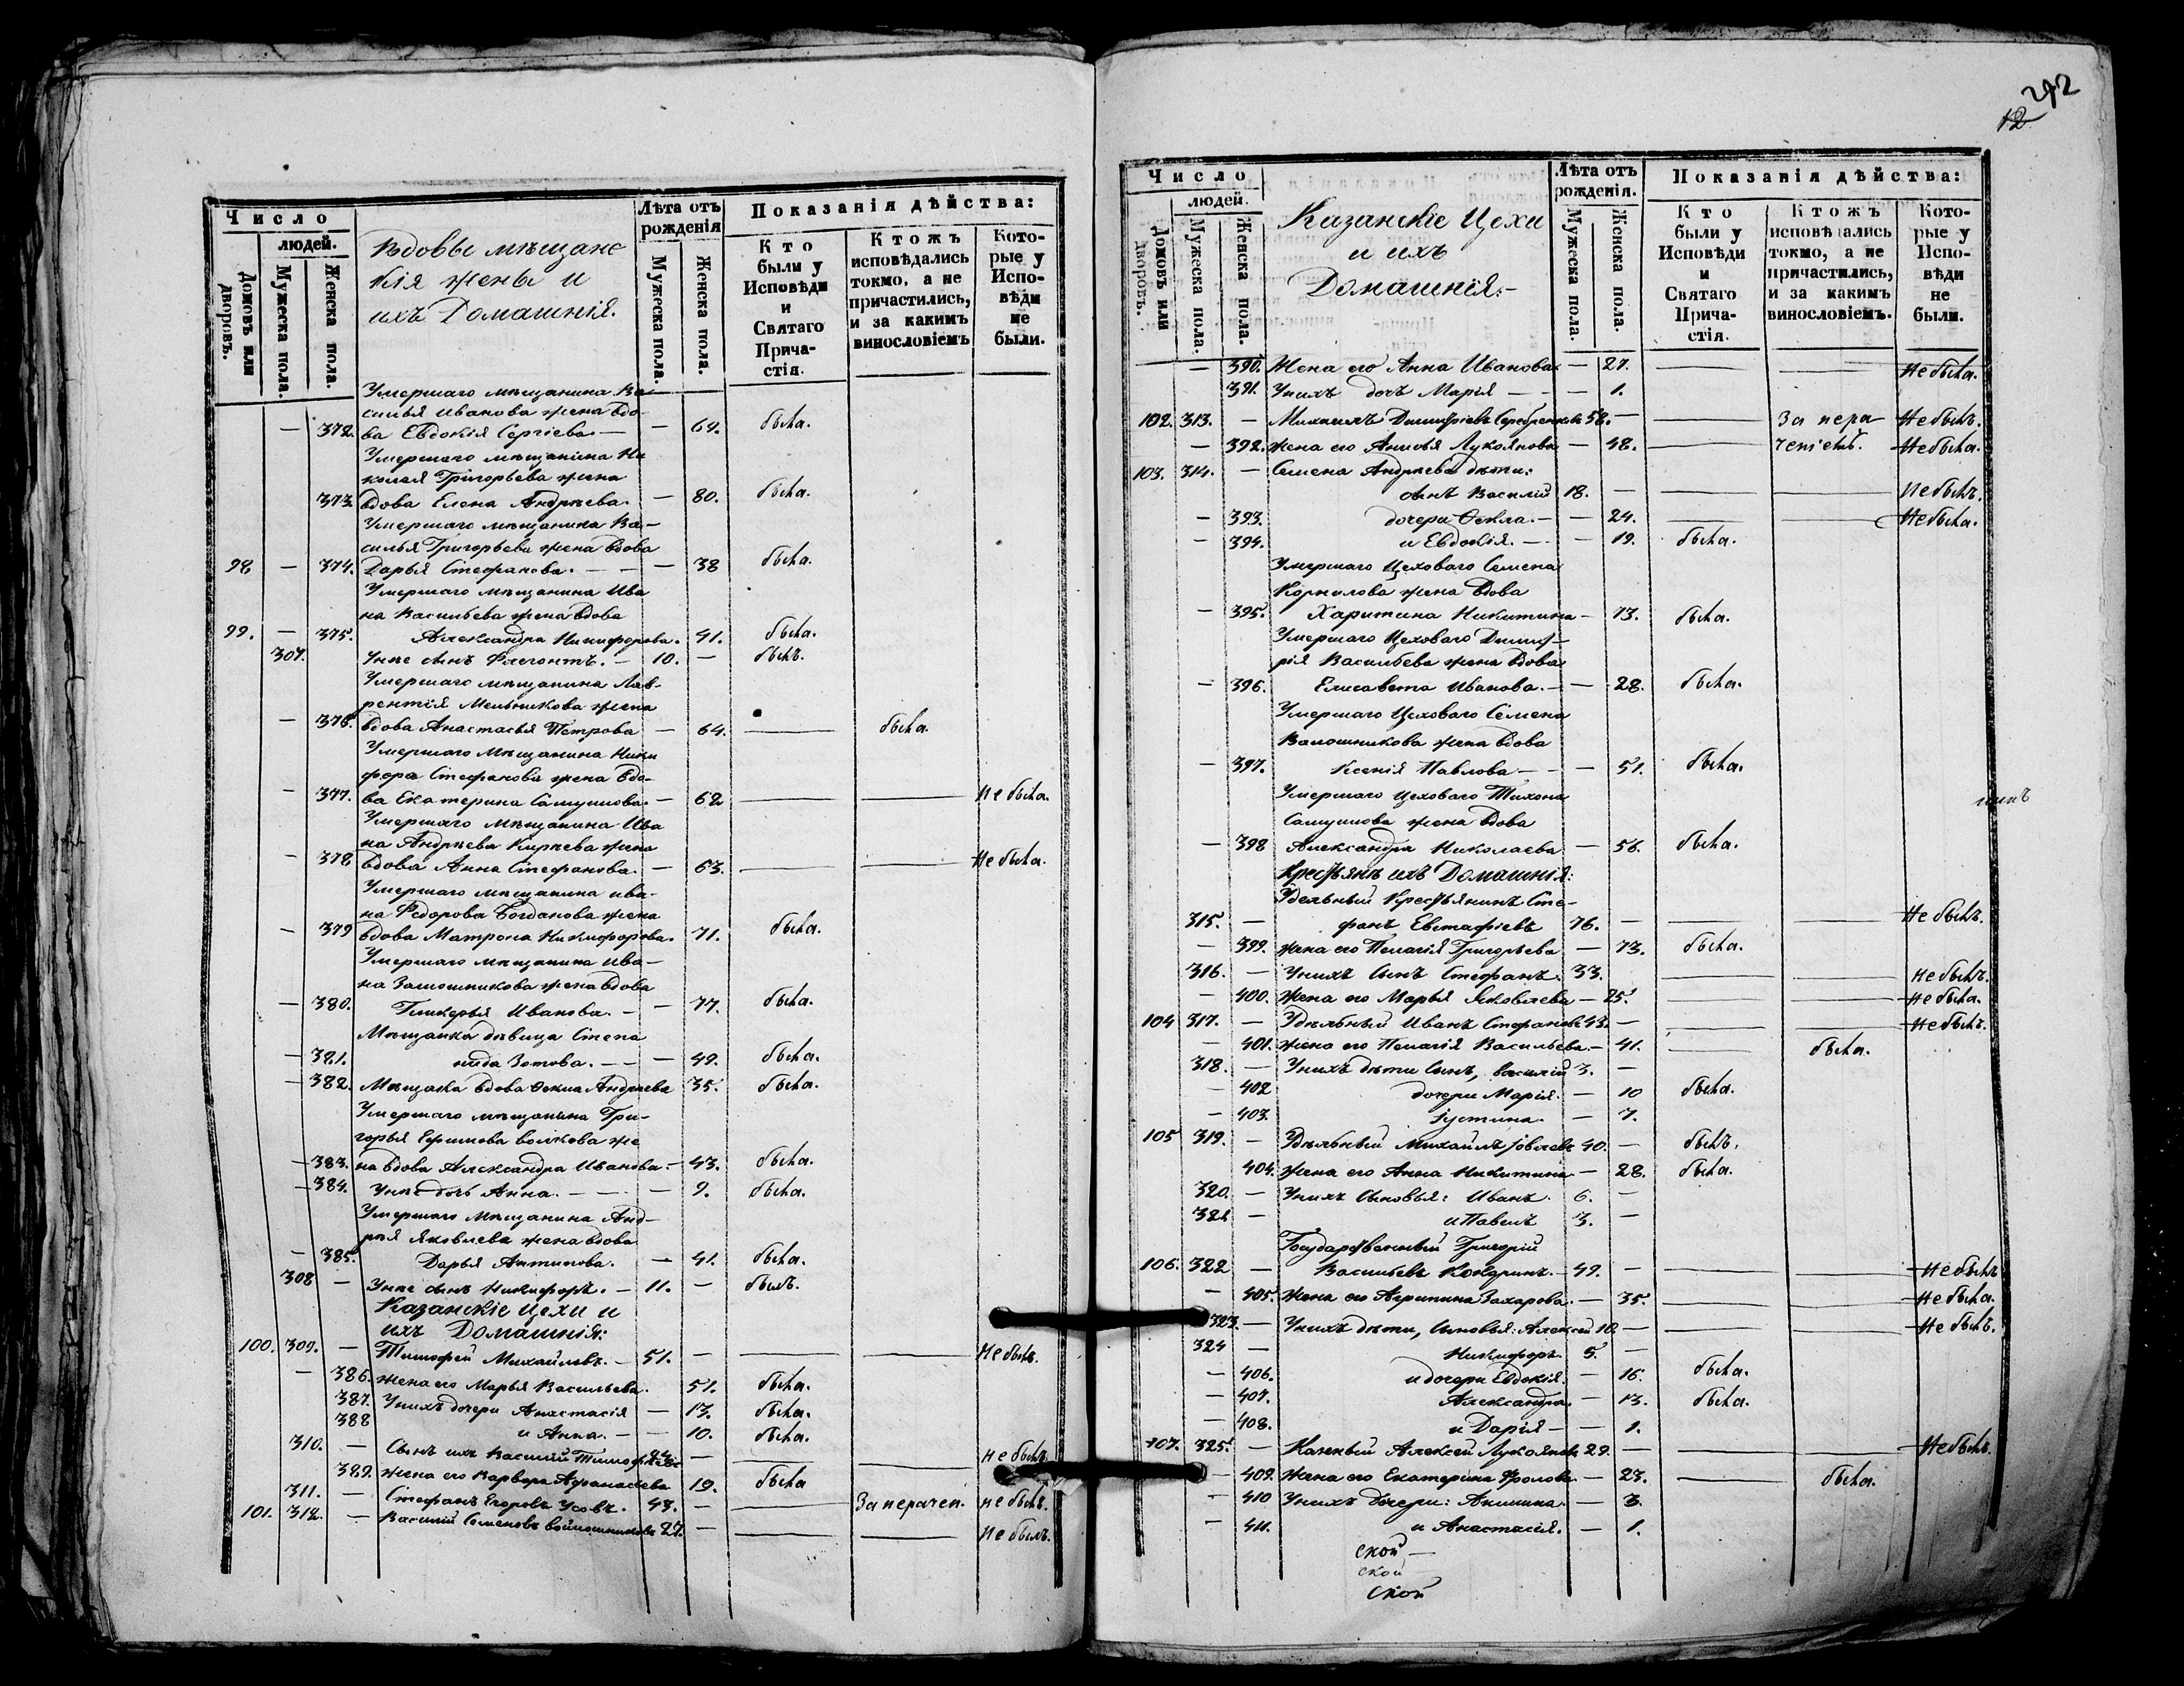 Число
людей.
Домовъ или дворовъ.
Мужеска пола.
Женска пола.
Вдовы мѣщанс
кія жены и
ихъ Домашнія.
Лѣта отъ рожденія
Мужеска пола.
Женска пола.
Показанія дѣйства:
Кто были у Исповѣди и Святаго Прича-стія.
Ктожъ исповѣдались токмо, а не причастились, и за какимъ винословіемъ
Кото-рые у Испо-вѣди не были.
Умершаго мѣщанина Ва-
силья Иванова жена вдо-
— 372. ва Евдокія Сергіева. — — 64. была.
Умершаго мѣщанина Ни
колая Григорьева жена
373. вдова Елена Андрѣева. — 80. была.
Умершаго мѣщанина Ва-
силья Григорьева жена вдова
98 — 374. Дарья Стефанова. — — — 38 была.
Умершаго мѣщанина Ива
на Васильева жена вдова
99. — 375. Александра Никифорова. 41. была.
307. У нее сынъ Флегонтъ. — 10. — былъ.
Умершаго мѣщанина Лав-
рентія Мельникова жена
— 376. вдова Анастасья Петрова — 64. — была.
Умершаго Мѣщанина Ники
фора Стефанова жена вдо-
— 377. ва Екатерина Самуилова. — 62 — — Не была.
Умершаго Мѣщанина Ива
на Андрѣева Кирѣева жена
— 378 вдова Анна Стефанова. — 63. — — Не была.
Умершаго мѣщанина ива-
на Федорова Богданова жена
— 379 вдова Матрона Никифорова. 71. была.
Умершаго мѣщанина Ива-
на жена вдова
— 380. Гликерья Иванова. — — 77. была.
Мѣщанка дѣвица Степа
— 381. нида Зотова. — — — 49. была.
— 382. Мѣщанка вдова Ѳекла Андрѣева 35. была.
Умершаго мѣщанина Гри-
горья Ефимова волкова же
— 383. на вдова Александра Иванова — 43. была.
— 384. У нее дочь Анна. — — — 9. была.
Умершаго Мѣщанина Анд-
рѣя Яковлева жена вдова
— 385. Дарья Антипова. — 41. была.
308 — У нее сынъ Никифоръ. — 11. — былъ.
Казанскіе Цехи и
ихъ Домашнія:
100. 309. — Тимофей Михайловъ. — 51. — — — Не былъ.
— 386. жена его Марья Васильева. 51. была.
387. У нихъ дочери Анастасія — 13. была.
388 и Анна. — — 10. была.
310. — Сынъ ихъ Василій — — — не былъ.
389. жена его Варвара Афанасьева 19. была
311. — Стефанъ Егоровъ Усовъ. 43. — — За нерачен. не былъ.
101. 312. — Василій Семеновъ 27. — — — Не былъ.
292
12
Число
людей.
Домовъ или дворовъ.
Мужеска пола.
Женска пола.
Казанскіе Цехи
и ихъ
Домашнія.—
Лѣта отъ рожденія.
Мужеска пола.
Женска пола.
Показанія дѣйства:
Кто были у Исповѣди и Святаго Прича-стія.
Ктожъ исповѣдались токмо, а не причастились, и за какимъ винословіемъ.
Кото-рые у Испо-вѣди не были.
— 390. Жена его Анна Иванова. — 27. — — Не была.
391. У нихъ дочь Марія — — — 1.
102. 313. — Михаилъ Димитріевъ 58. — — За нера Не былъ.
— 392. жена его Анисья Лукоянова — 48. — ченіемъ. Не была.
103. 314. — Семена Андрѣева дѣти:
сынъ Василій 18. — — — Не былъ.
— 393. дочери Ѳекла. — — 24. — — Не была.
— 394. и Евдокія. — — 19. была.
Умершаго Цеховаго Семена
Корнилова жена вдова
— 395. Харитина Никитина — 73. была.
Умершаго Цеховаго Димит-
рія Васильева жена вдова
— 396. Елисавета Иванова. — — 28. была.
Умершаго Цеховаго Семена
жена вдова
— 397. Ксенія Павлова — — — 51. была.
Умершаго Цеховаго Тихона
Самуилова жена вдова
— 398 Александра Николаева — 56. была.
Крестьянъ ихъ Домашнія:
Удѣльный Крестьянинъ Сте-
315. — фанъ Евстафіевъ 76. — — — Не былъ.
— 399. жена его Пелагія Григорьева — 73. была.
316. — У нихъ Сынъ Стефанъ. 33. — — Не былъ.
— 400. Жена его Марья Яковлева — 25. — — Не была.
104 317. — Удѣльный Иванъ Стефановъ 43. — — — Не былъ.
— 401. жена его Пелагія Васильева. — 41. — была.
318. — У нихъ дѣти Сынъ, василій 3. —
— 402 дочери Марія. — 10 была.
— 403. Іустина. — 7.
105 319. — Удѣльный Михаилъ Іовлевъ 40. — былъ.
404. жена его Анна Никитина — 28. была.
320. — У нихъ Сыновья: Иванъ. 6. —
321 — и Павелъ 3. —
Государственный Григорій
106. 322 — Васильевъ Кондринъ. — 49. — — — Не былъ
— 405. жена его Агрипина Захарова. — 35. — — Не была.
323. — У нихъ дѣти, Сыновья: Алексѣй 10. — — — Не былъ.
324 — Никифоръ. 5. —
— 406. и дочери Евдокія. — 16. была.
— 407. Александра. — 13. была.
— 408. и Дарія — — 1.
107. 325. — Казенный Алексѣй Лукояновъ 29. — — — Не былъ.
— 409. Жена его Екатерина Фролова — 23. — была.
— 410 У нихъ Дочери: Акилина. — 3.
— 411. и Анастасія. — 1.
ской —
ской
ской